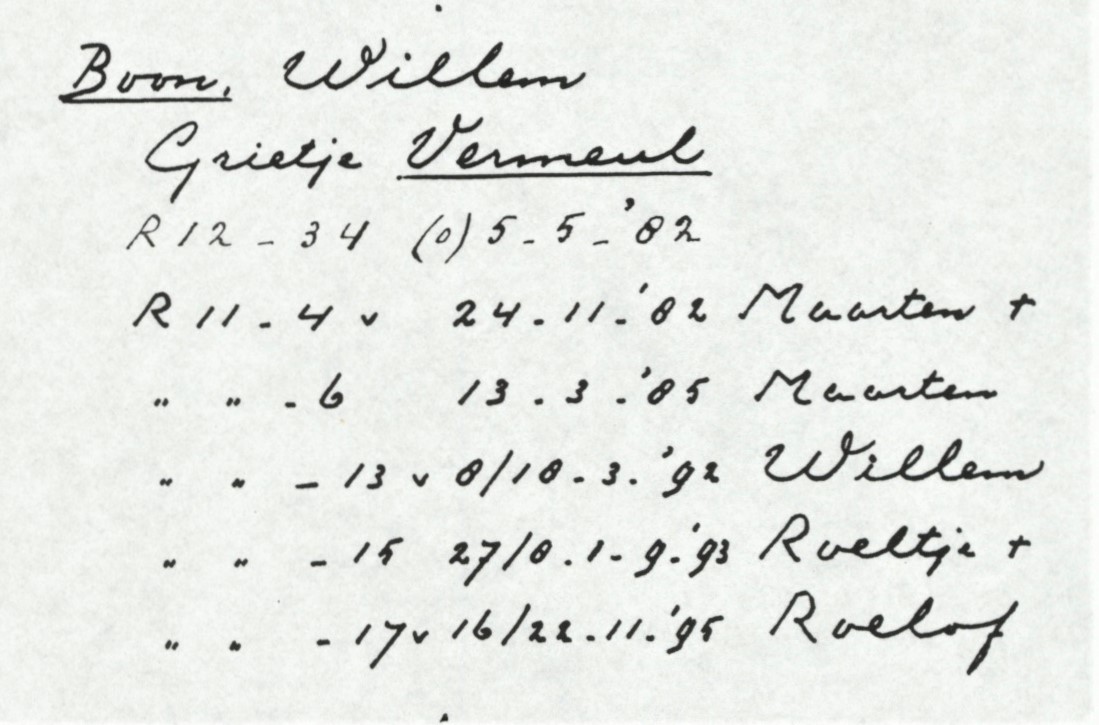 Boon, Willem
Grietje Vermeul
R 12 - 34 (o) 5 - 5 - '82
R 11 - 4 v 24 - 11 - '82 Maarten +
" " - 6 13 - 3 - '85 Maarten
" " - 13 v 8/18 - 3 - '92 Willem
" " - 15 27/8 . 1 - 9 - '93 Roeltje +
" " - 17 v 16/22 - 11 - '95 Roelof